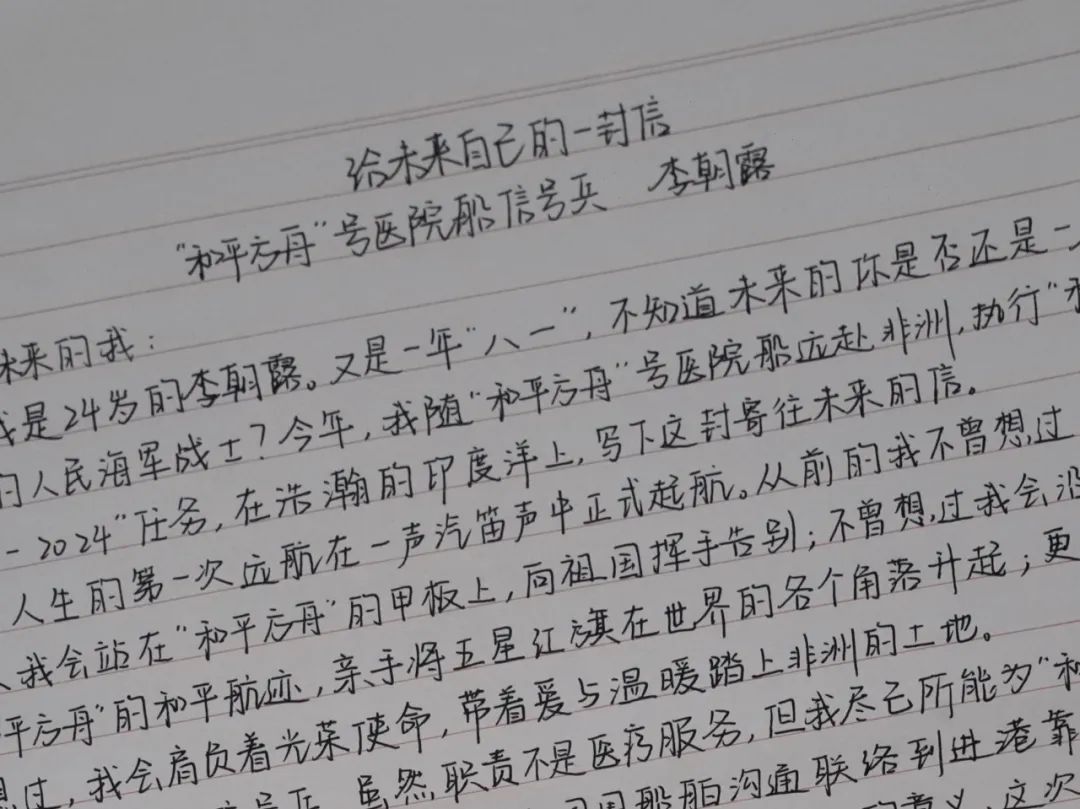 给未来自己的一封信
“和平方舟”号医院船信号兵 李朝露
未来的我：
我是24岁的李朝露。又是一年“八一”，不知道未来的你是否还是一
的人民海军战士？今年，我随“和平方舟”号医院船远赴非洲，执行“和
-2024”任务，在浩瀚的印度洋上，写下这封寄往未来的信。
人生的第一次远航在一声汽笛声中正式起航。从前的我不曾想过
我会站在“和平方舟”的甲板上，向祖国挥手告别；不曾想过我会沿
平方舟”的和平航迹，亲手将五星红旗在世界的各个角落升起；更
想过，我会肩负着光荣使命，带着爱与温暖踏上非洲的土地。
号兵，虽然职责不是医疗服务，但我尽己所能为“和
国船舶沟通联络到进港靠
的意义。这次